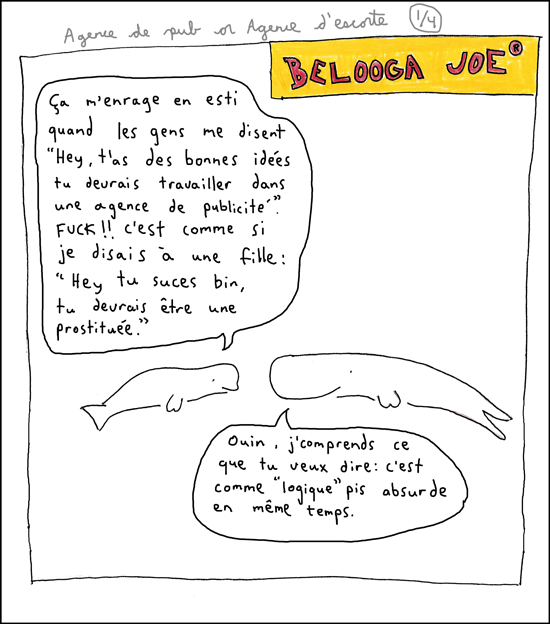 Agence de pub or Agence d'escorte 1/4
BELOOGA JOE®
Ça m'enrage en esti
quand les gens me disent
"Hey, t'as des bonnes idées
tu devrais travailler dans
une agence de publicité".
FUCK!! c'est comme si
je disais à une fille:
"Hey tu suces bin,
tu devrais être une
prostituée."
Ouin, j'comprends ce
que tu veux dire: c'est
comme "logique" pis absurde
en même temps.